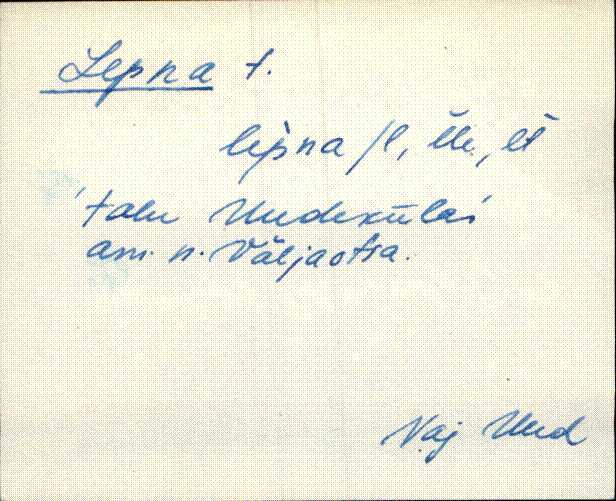 Lepna t.
lepna /l, 
'talu Uudekülas
am. n. Väljaotsa.
Vaj Uud